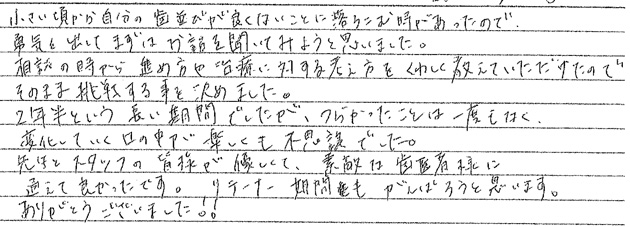 小さい頃から自分の歯並びが良くないことに落ちこむ時があったので、
勇気を出してまずはお話を聞いてみようと思いました。
相談の時から進め方や治療に対する考え方をくわしく教えていただけたので
そのまま挑戦する事を決めました。
2年半という長い期間でしたが、つらかったことは一度もなく、
変化していく口の中が楽しくも不思議でした。
先生とスタッフの皆様が優しくて、素敵な歯医者様に
通えて良かったです。リテーナー期間もがんばろうと思います。
ありがとうございました!!